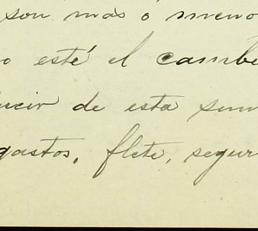 son más ó meno
o esté el cambi
ucir de esta sum
gastos, flete, segur